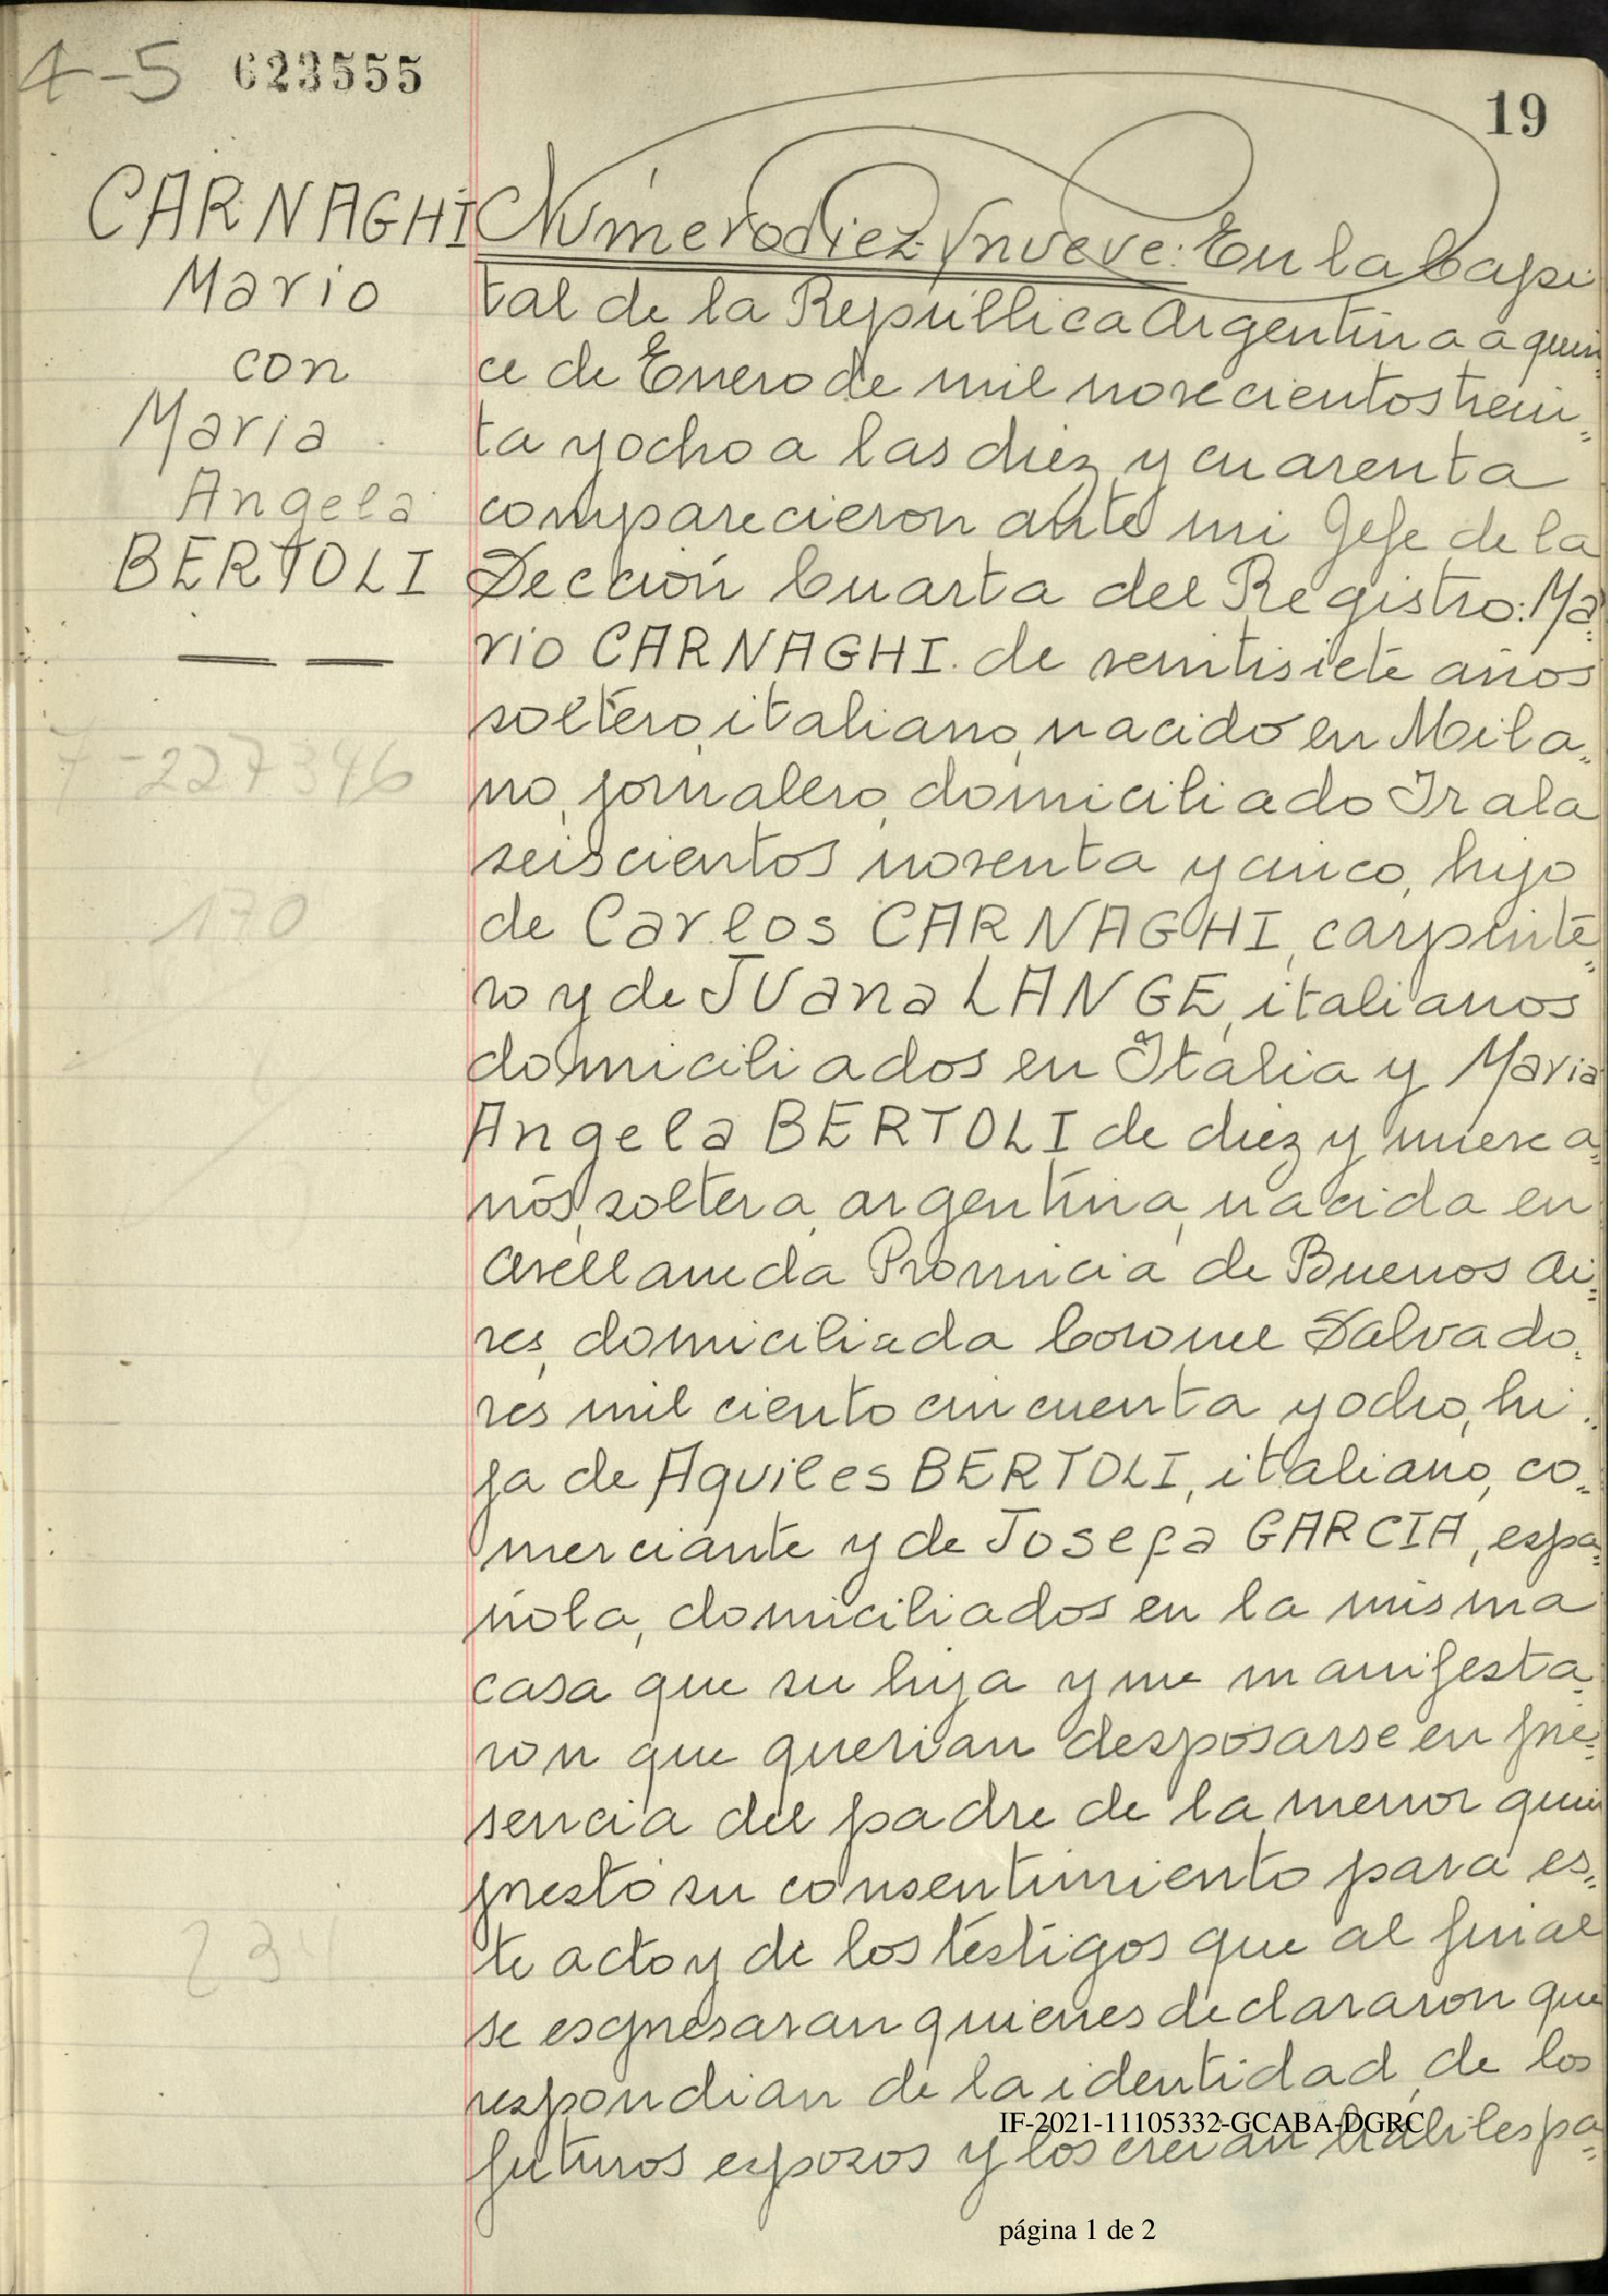 4-5 623555
19
CARNAGHI
Mario
con
Maria
Angela
BERTOLI
7-227346
170
234
Número diez y nueve: En la Capi
tal de la República Argentina a quin
ce de Enero de mil novecientos trein
ta y ocho a las diez y cuarenta
comparecieron ante mi Jefe de la
Sección Cuarta del Registro: Ma
rio CARNAGHI. de veintisiete años
soltero, italiano, nacido en Mila
no, jornalero, domiciliado Irala
seiscientos noventa y cinco, hijo
de Carlos CARNAGHI, carpinte
ro y de Juana LANGE, italianos
domiciliados en Italia y Maria
Angela BERTOLI de diez y nueve a
ños, soltera, argentina, nacida en
Avellaneda Provincia de Buenos Ai
res, domiciliada Coronel Salvado
res mil ciento cincuenta y ocho, hi
ja de Aquiles BERTOLI, italiano, co
merciante y de Josefa GARCIA, espa
ñola, domiciliados en la misma
casa que su hija y me manifesta
ron que querian desposarse en pre
sencia del padre de la menor quien
prestó su consentimiento para es
te acto y de los testigos que al final
se espresaran quienes declararon que
respondian de la identidad de los
futuros esposos y los creian hábiles pa
IF-2021-11105332-GCABA-DGRC
página 1 de 2